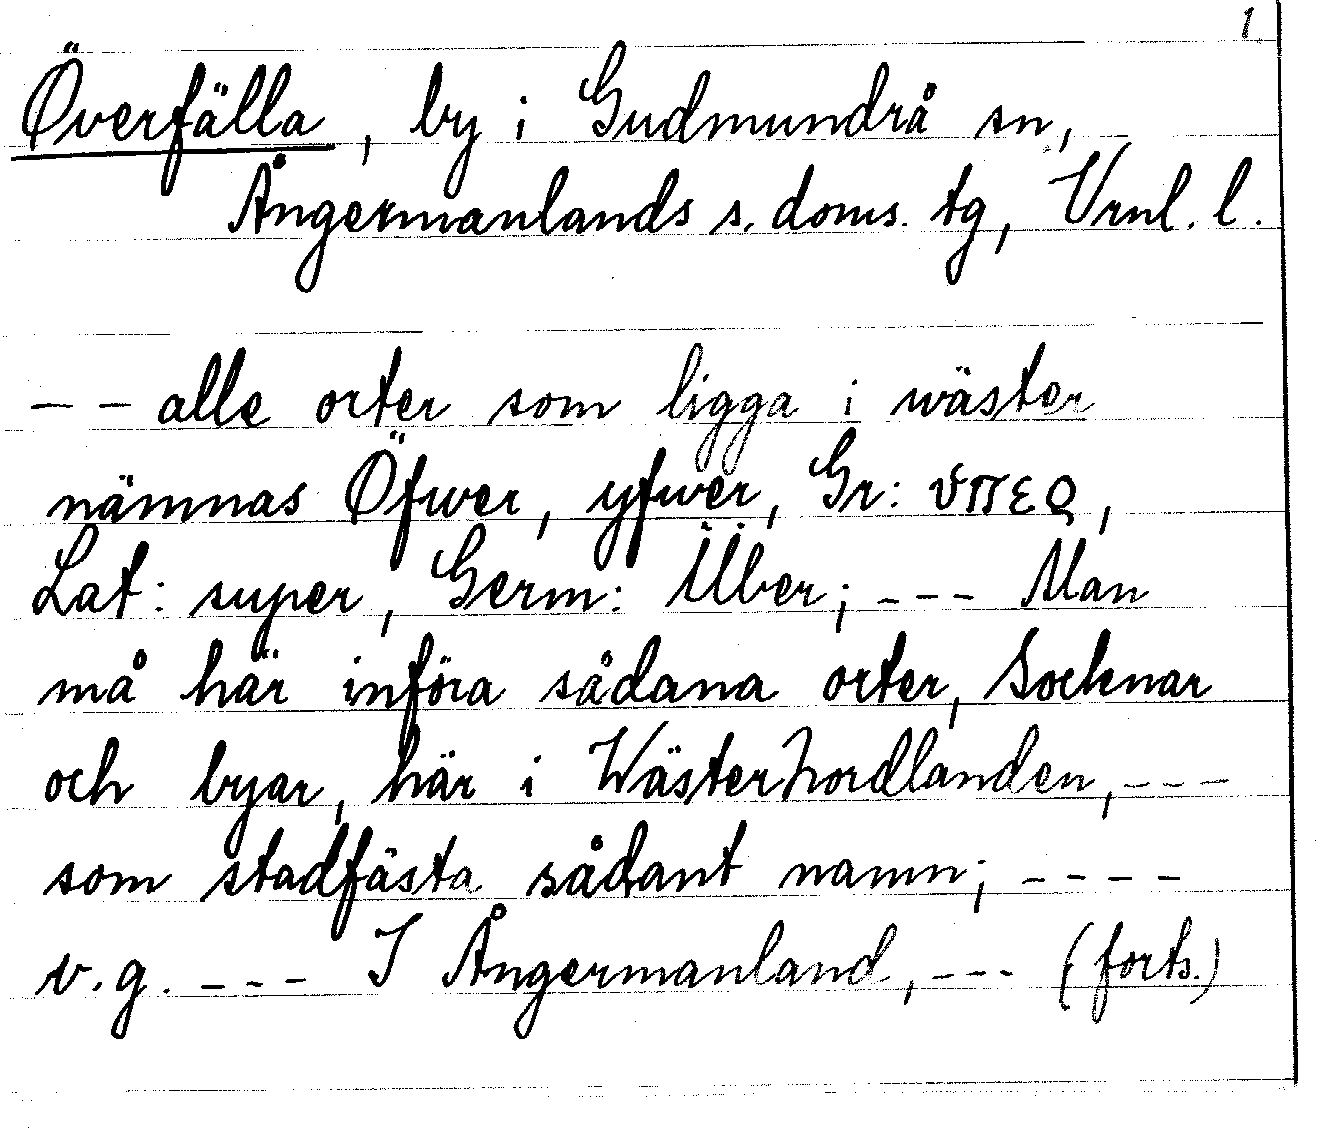 1.
Överfälla, by i Gudmundrå sn,
Ångermanlands s. doms. tg, Vrnl. l.
-- alle orter som ligga i wäster
nämnas Öfwer, yfwer, Gr: υπερ,
Lat: super, Germ: Über; --- Man
må här införa sådana orter, Socknar
och byar, här i Wästerhordlanden, ---
som stadfästa sådant namn; ----
v.g. --- I Ångermanland, --- (forts.)